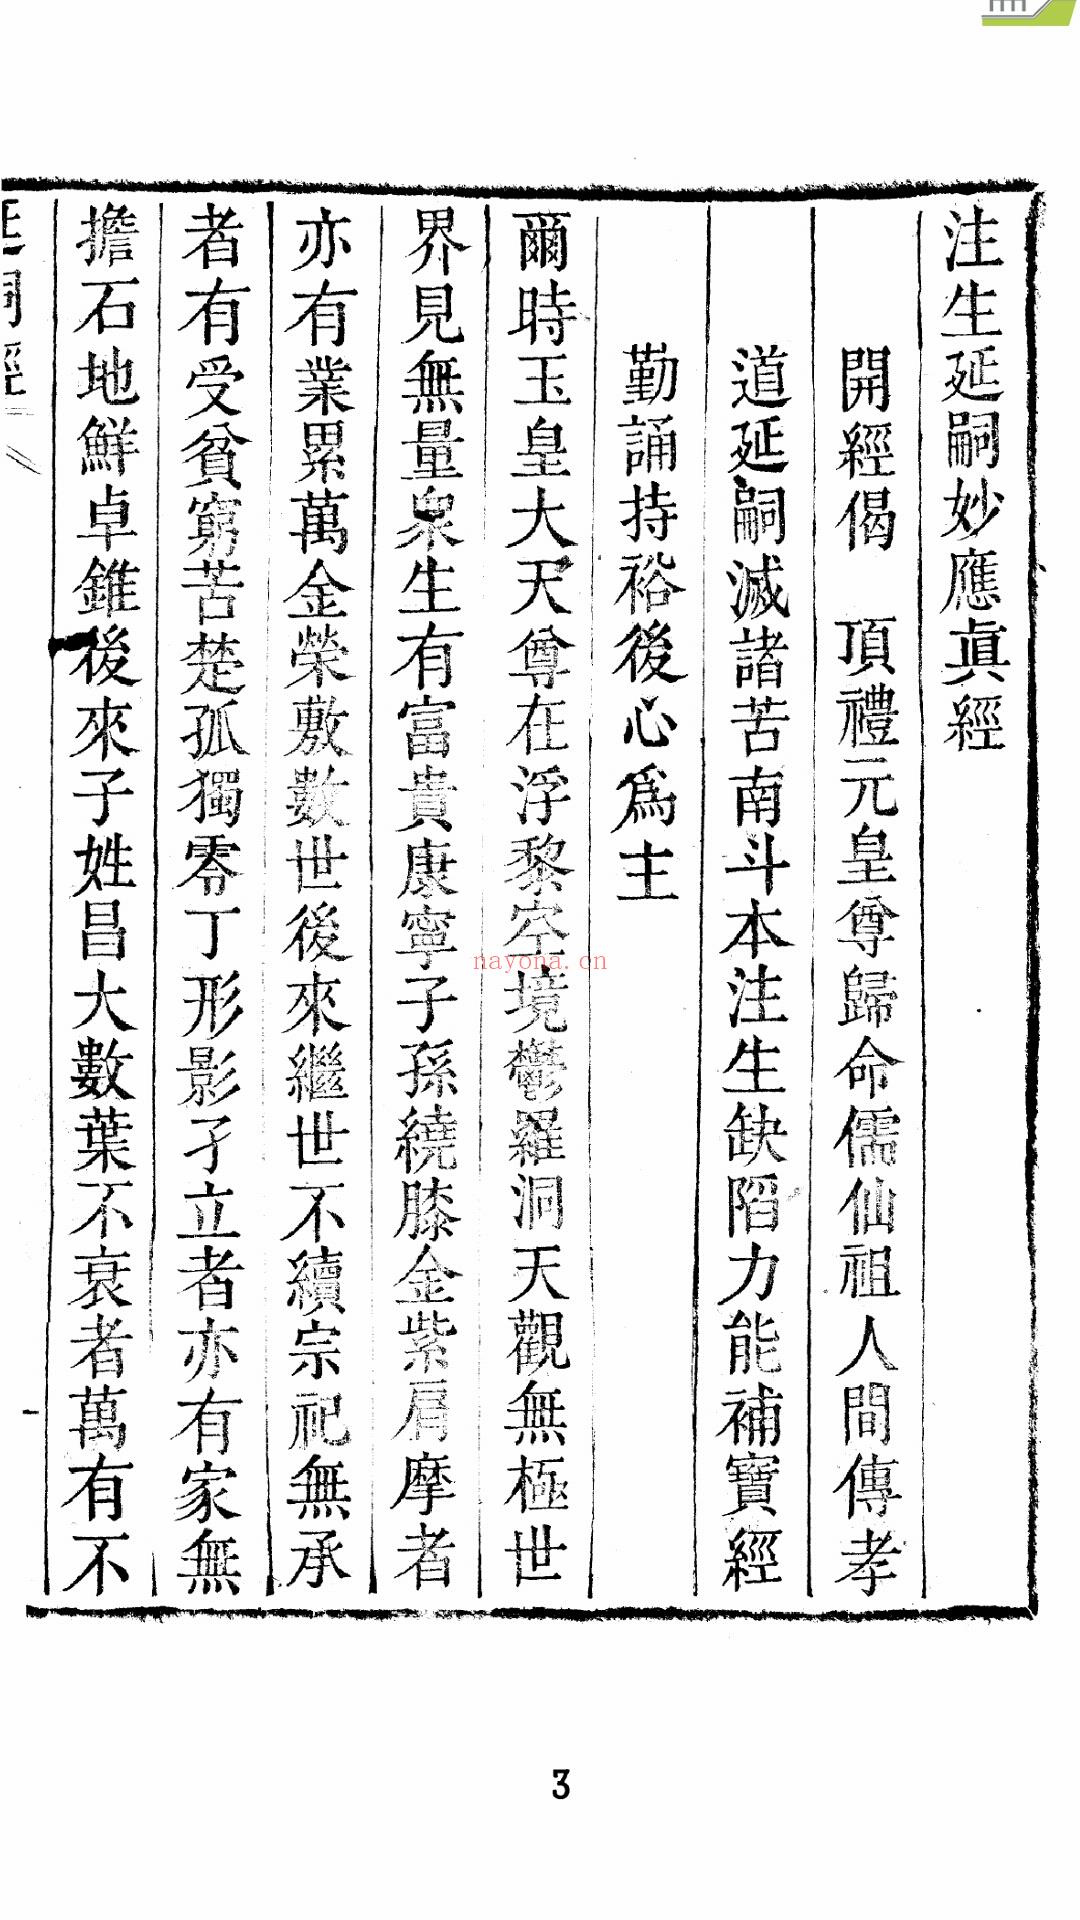 注生延嗣妙應眞經
開經偈　頂禮元皇尊歸命儒仙祖人間傳孝
道延嗣滅諸苦南斗本注生缺陷力能補寶經
勤誦持裕後心爲主
爾時玉皇大天尊在浮黎空境鬱羅洞天觀無極世
界見無量衆生有富貴康寧子孫繞膝金紫肩摩者
亦有業累萬金榮敷數世後來繼世不續宗祀無承
者有受貧窮苦楚孤獨零丁形影孑立者亦有家無
擔石地鮮卓錐後來子姓昌大數葉不衰者萬有不
延嗣經
nayona.cn
3